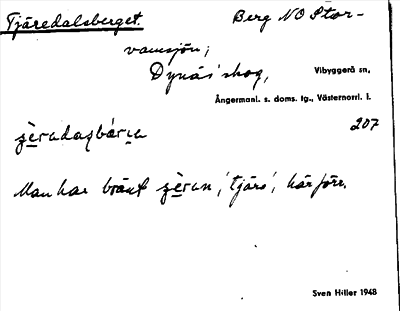 Tjäredalsberget. Berg NO Stor-
vamsjön;
Dynäs' skog, Vibyggerå sn,
Ångermanl. s. doms. tg., Västernorrl. l.
207
Man har bränt 'tjära', här förr.
Sven Hiller 1948